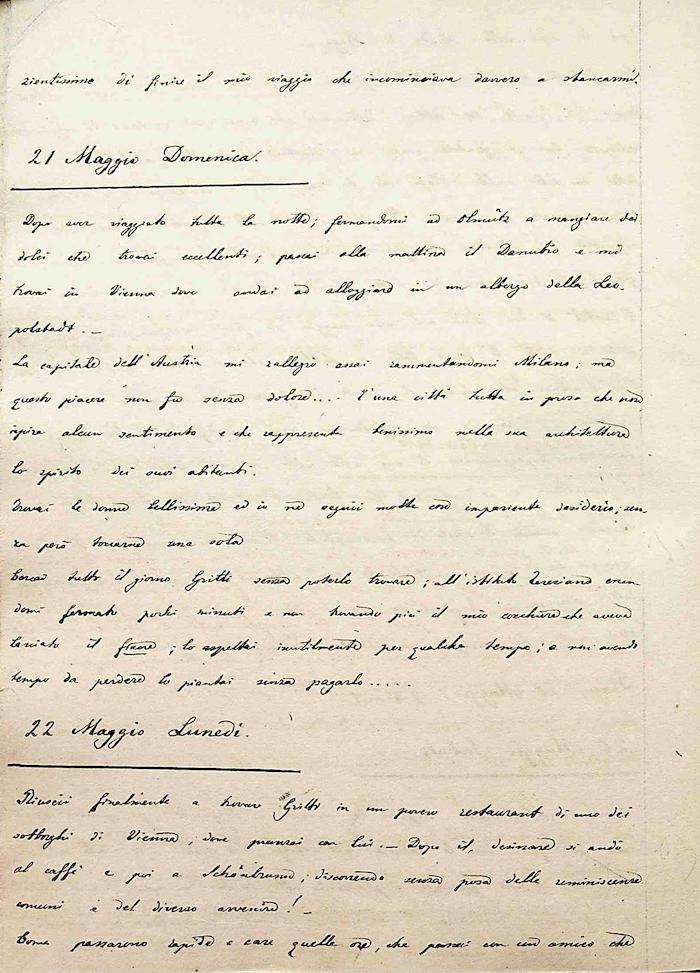 zientissimo di finire il mio viaggio che incominciava davvero a stancarmi.
21 Maggio Domenica.
Dopo aver viaggiato tutta la notte; fermandomi ad Olmütz a mangiare dei
dolci che trovai eccellenti; passai alla mattina il Danubio e mi
trovai in Vienna dove andai ad alloggiare in un albergo della Leo-
polstadt. —
La capitale dell'Austria mi rallegrò assai rammentandomi Milano; ma
questo piacere non fu senza dolore.... È una città tutta in prosa che non
ispira alcun sentimento e che rappresenta benissimo nella sua architettura
lo spirito dei suoi abitanti.
Trovai le donne bellissime ed io ne seguii molte con impaziente desiderio; sen
za però toccarne una sola
Cercai tutto il giorno Gritti senza poterlo trovare; all'istituto Teresiano essen-
domi fermato pochi minuti e non trovando più il mio cocchiere che aveva
lasciato il fiacre; lo aspettai inutilmente per qualche tempo; e non avendo
tempo da perdere lo piantai senza pagarlo.....
22 Maggio Lunedì.
Riuscii finalmente a trovare Gritti in un povero restaurant di uno dei
sobborghi di Vienna, dove pranzai con lui. — Dopo il desinare si andò
al caffè e poi a Schönbrunn; discorrendo senza posa delle reminiscenze
comuni e del diverso avvenire! —
Come passarono rapide e care quelle ore, che passai con un amico che